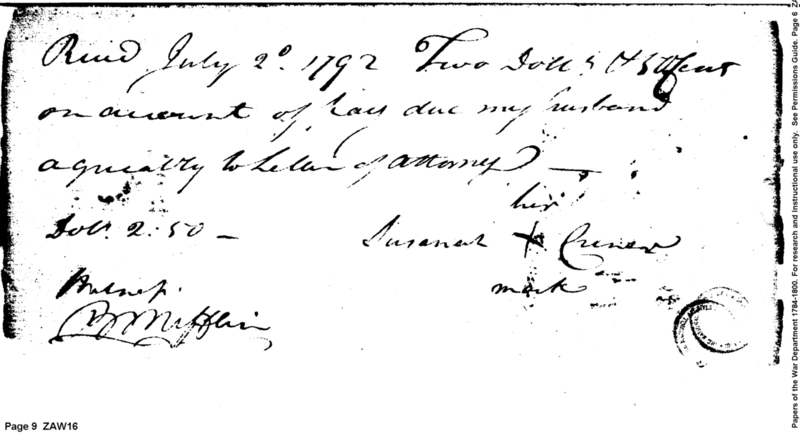 Recd July 2d. 1792 Two Dolls & 50 Cent
on account of pay due my husband
agreeably to Letter of Attorney —
Dolls. 2.50 —
her
Susanah X
mark
Witness.
B Mifflin
Page 9 ZAW16
Papers of the War Department 1784-1800. For research and instructional use only. See Permissions Guide. Page 6